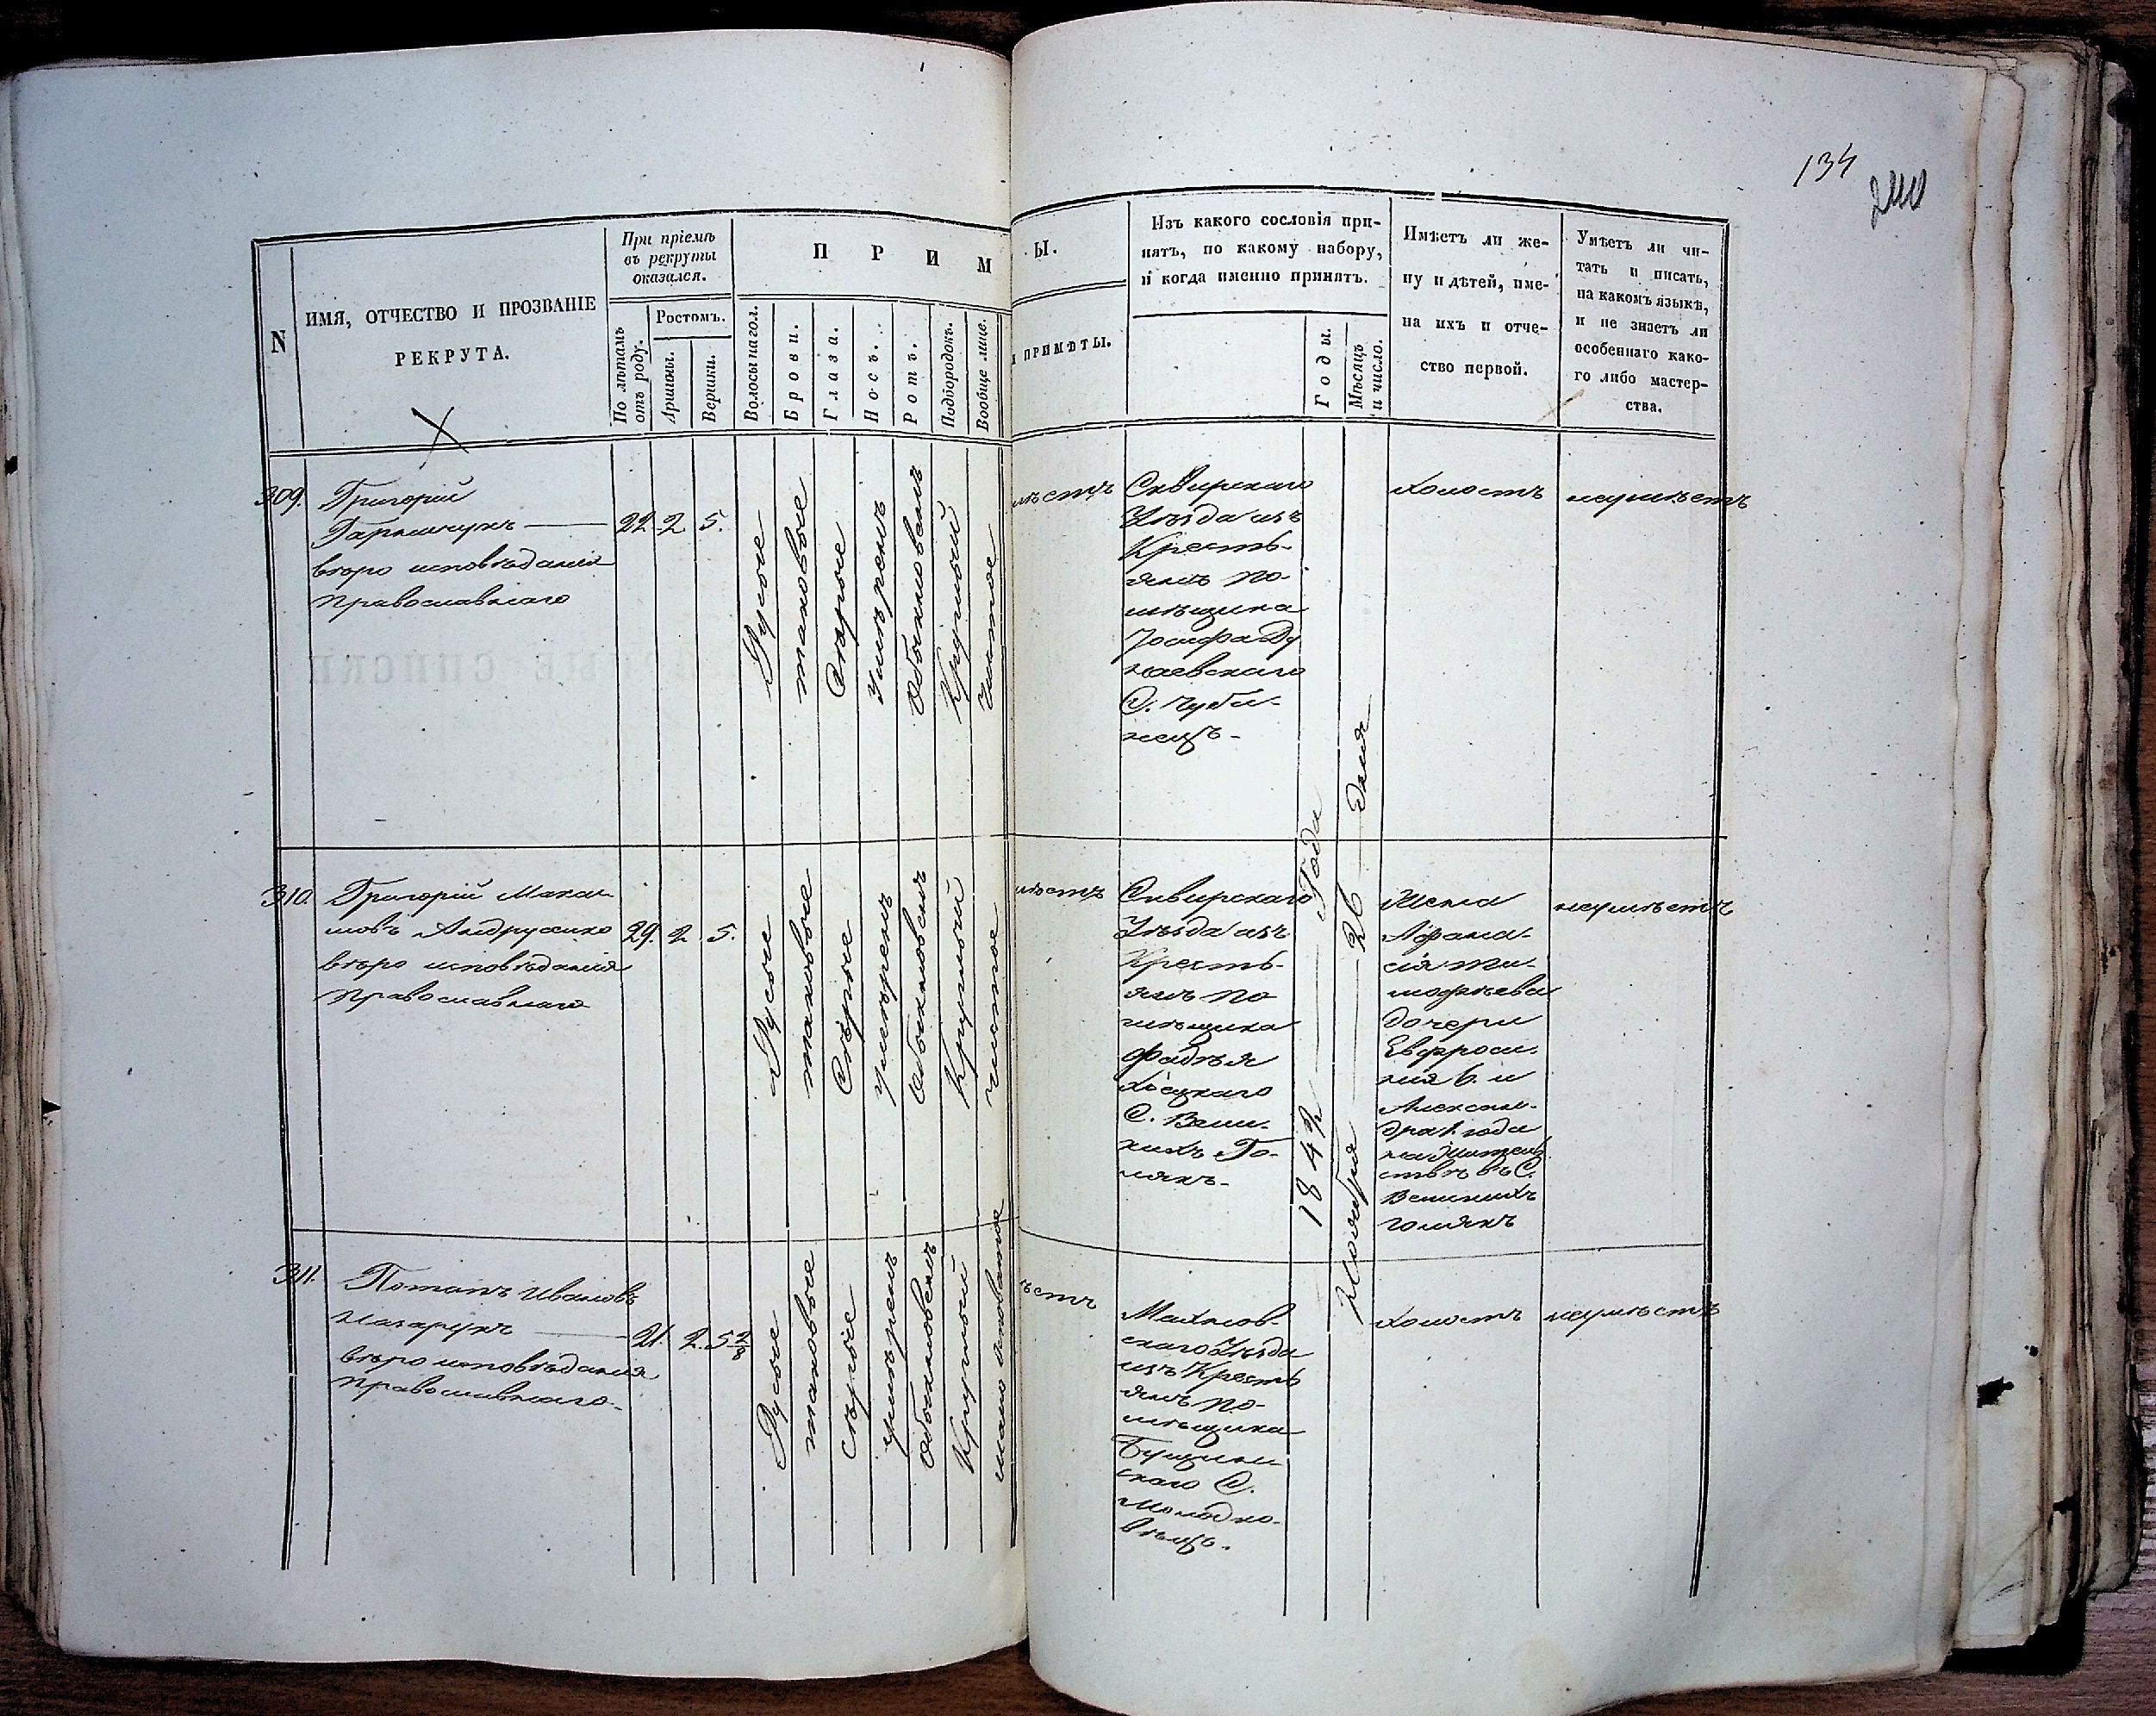 134
240
N
ИМЯ, ОТЧЕСТВО И ПРОЗВАНІЕ
РЕКРУТА.
При пріемѣ
въ рекруты
оказался.
По лѣтамъ
отъ роду.
Ростомъ.
Аршины.
Вершки.
П Р И М
Волосы на гол.
Брови.
Глаза.
Носъ.
Ротъ.
Подбородокъ.
Вообще лице.
Ы.
ПРИМѢТЫ.
Изъ какого сословія при-
нятъ, по какому набору,
и когда именно принятъ.
Годы.
Мѣсяцъ
и число.
Имѣетъ ли же-
ну и дѣтей, име-
на ихъ и отче-
ство первой.
Умѣетъ ли чи-
тать и писать,
на какомъ языкѣ,
и не знаетъ ли
особеннаго како-
го либо мастер-
ства.
309.
Григорій
вѣро исповѣданія
Православнаго
22
2
5.
Русые
таковые
Сѣрые
Умѣренъ
Обыкновенъ
Круглый
Чистое
Сквирскаго
Уѣзда изъ
Кресть-
янъ по-
мѣщика
Іосифа Ду
наевскаго
С. Чуби-
нецъ-
холостъ
неумѣетъ
310.
Григорій Макси-
мовъ Андрусенко
вѣро исповѣданія
Православнаго
29.
2
5.
Русые
таковые
Сѣрые
Умѣренъ
Обыкновенъ
Круглый
чистое
Сквирскаго
Уѣзда изъ
Кресть-
янъ по
мѣщика
Фадѣя
С. Вели-
кихъ Го-
лякъ-
Жена
Афана-
сія Ти-
мофѣева
дочери
Евфроси-
нія 6. и
Алексан-
дра 1. года
на жител
ствѣ въ С.
Великихъ
голякъ
неумѣетъ
1842 Года
Ноября 26 дня
311.
Потапъ Ивановъ
Назарукъ
вѣро исповѣданія
Православнаго-
21.
2.
5 2/8
Русые
таковые
сѣрые
умѣренъ
Обыкновенъ
Круглый
мало осповатое
Махнов-
скаго Уѣзда
изъ Кресть
янъ по-
мѣщика
скаго С.
Молодко-
вецъ.
холостъ
неумѣетъ